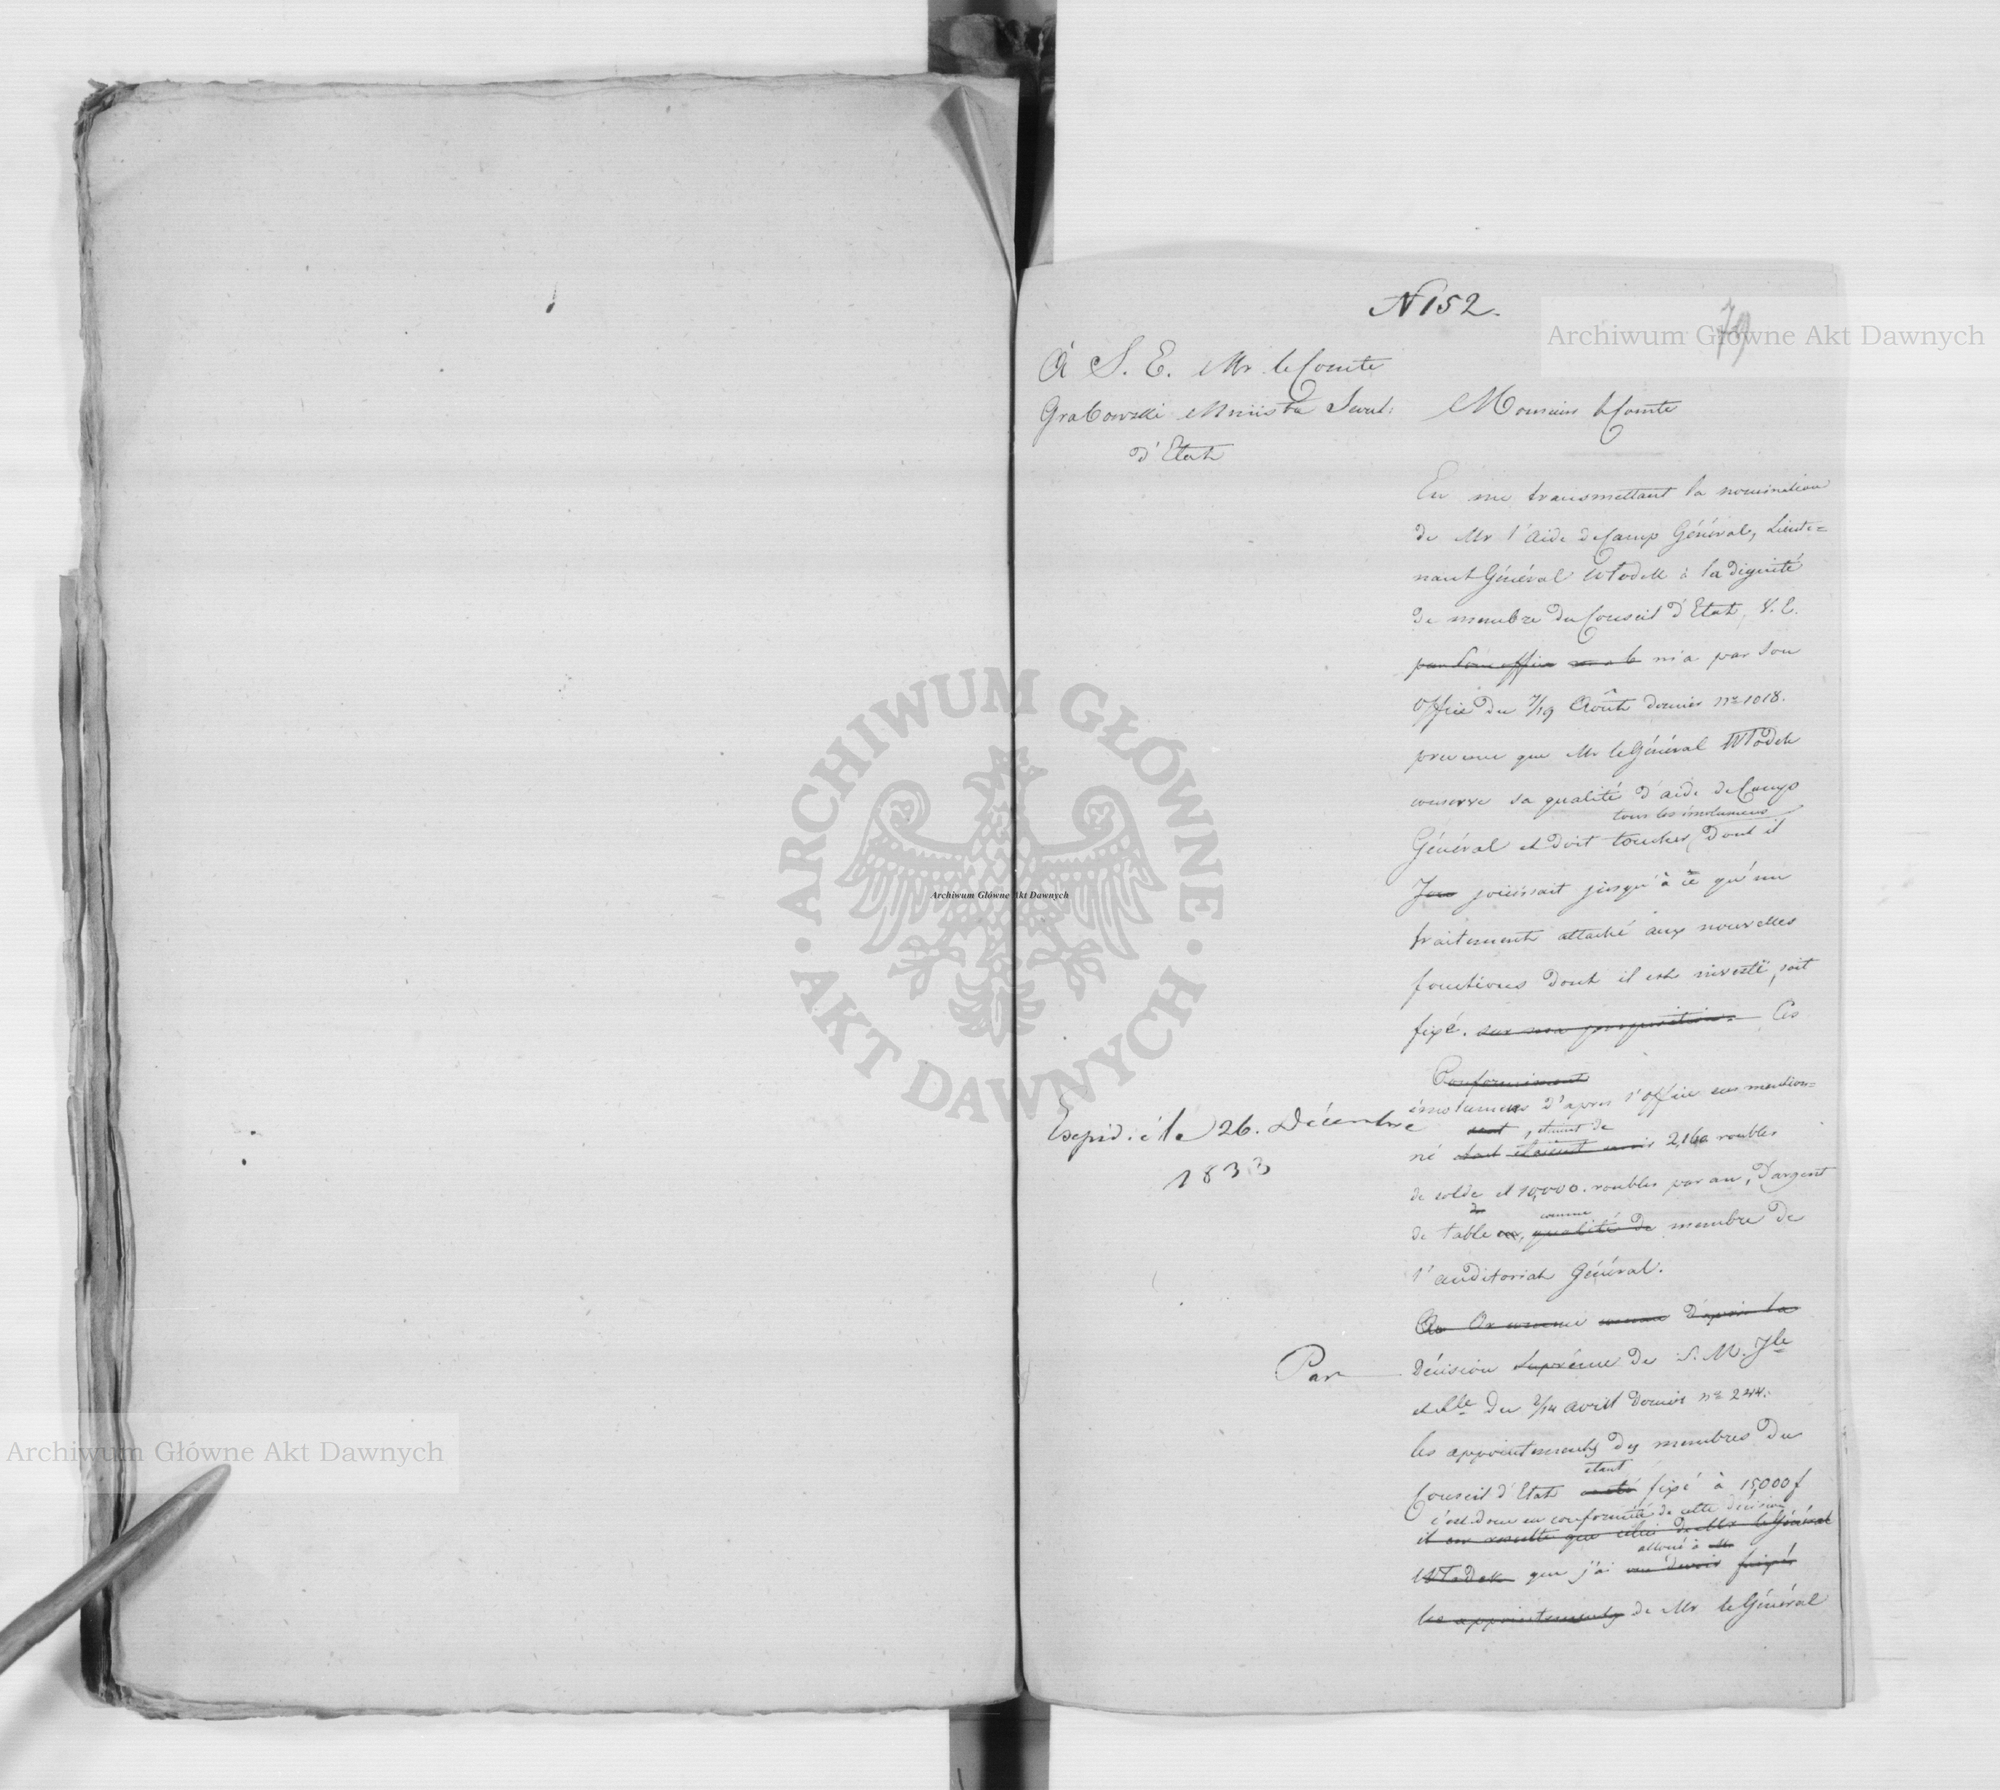 N 152.
79
À S. E. Mr le Comte
Grabowski Ministre Secret:
d'Etat
Monsieur le Comte
En me transmettant la nomination
de Mr l'Aide de Camp Général, Lieute=
nant Général Włodek à la dignité
de membre du Conseil d'Etat, V. E.
par son office m'a par son
Office du 7/19 Août dernier No 1018.
prevenu que Mr le Général Włodek
conserve sa qualité d'aide de Camp
tous les émolumens
Général et doit toucher, dont il
jouissait jusqu'à ce qu'un
traitement attaché aux nouvelles
fonctions dont il est investi, soit
fixé. sur ma proposition. Ces
Conformement
émolumens d'apres l'Office sus mention=
sont, etaient de
né dont étaient 2,160 roubles
de solde et 10,000. roubles par an, d'argent
de
comme
de table en qualité de membre de
l'auditoriat Général.
Or comme d'après la
Par
Décision Suprême de S. M. Jle
et Rle du 2/14 avril dernier No 244.
les appointements des membres du
etant
Conseil d'Etat fixé à 15,000 f
c'est donc en conformité de cette décision
il en resulte que celui de Mr le Général
alloué à
Włodek que j'ai cru devoir fixer
les appointements de Mr le Général
Expédié le 26. Décembre
1833
Archiwum Główne Akt Dawnych
ARCHIWUM GŁÓWNE
· AKT DAWNYCH ·
Archiwum Główne Akt Dawnych
Archiwum Główne Akt Dawnych